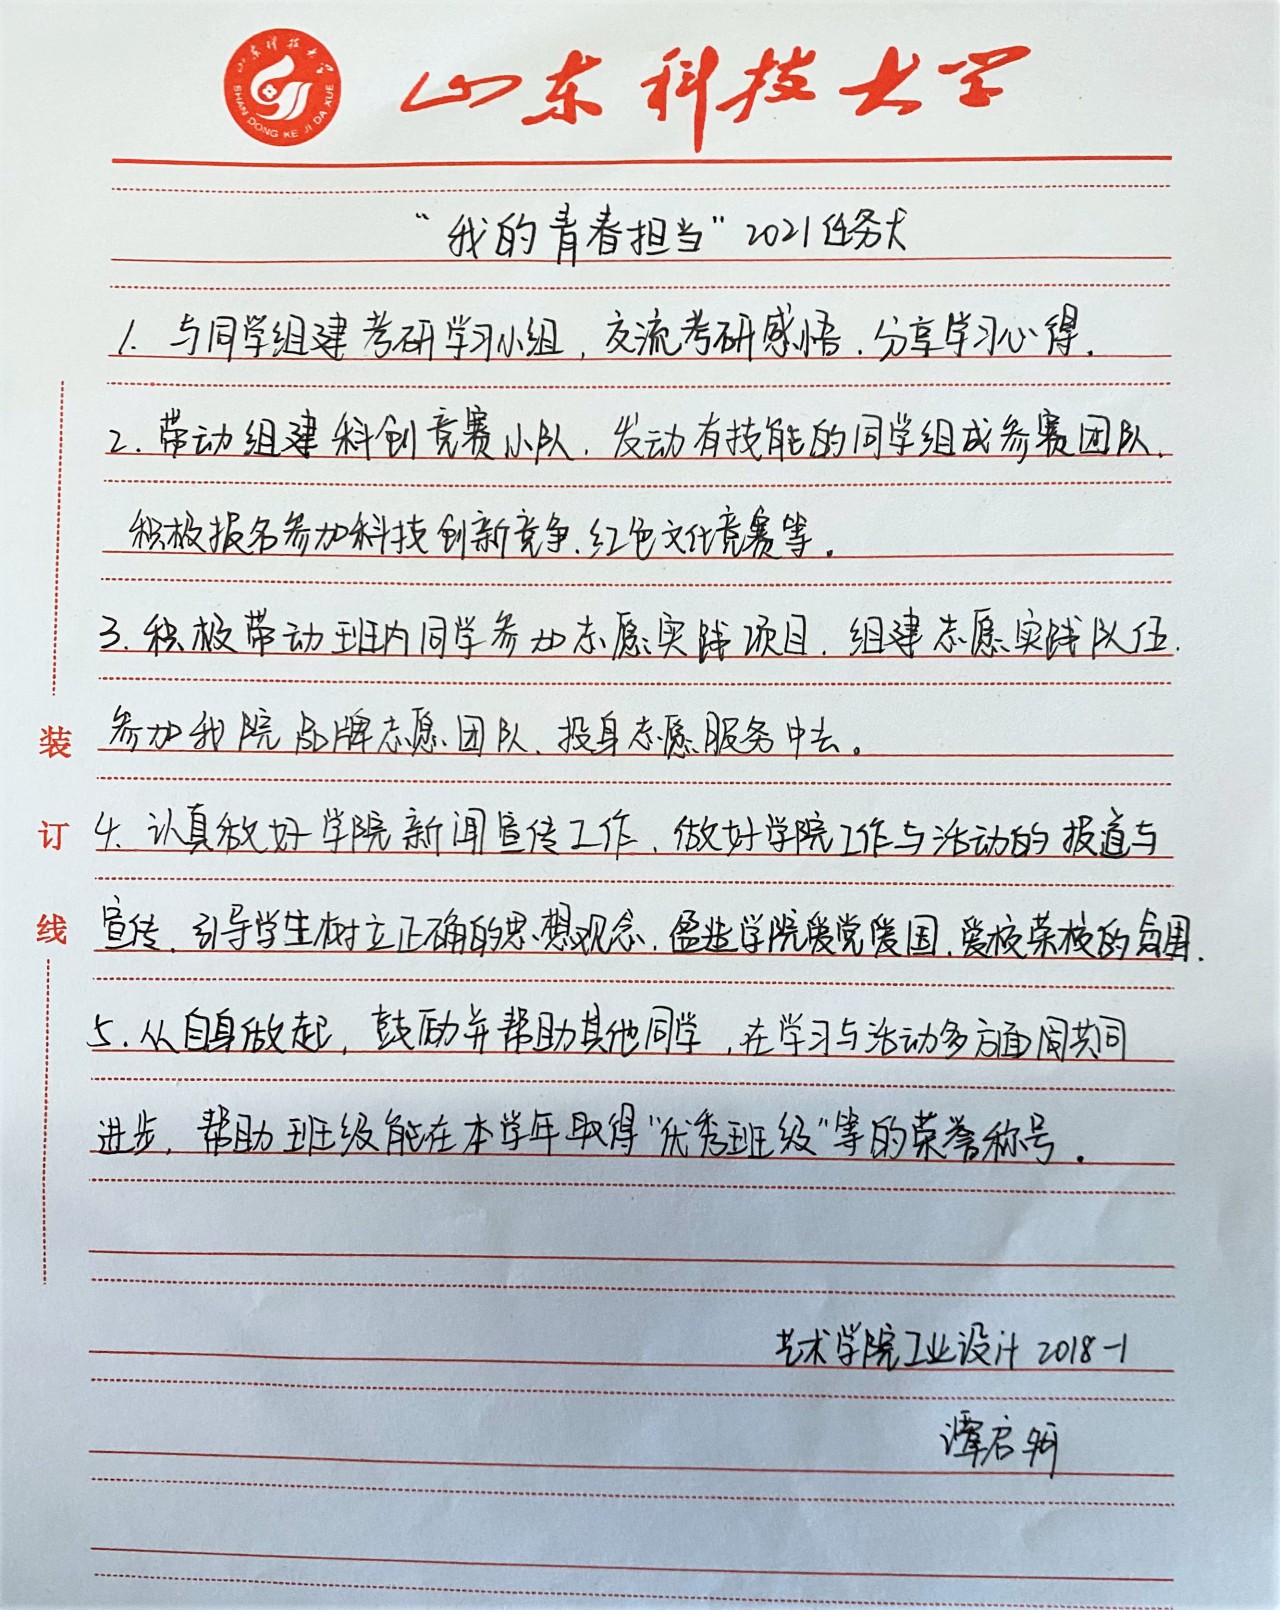 山东科技大学
SHAN DONG KE JI DA XUE
“我的青春担当”2021任务大
1. 与同学组建考研学习小组，交流考研感悟，分享学习心得。
2. 带动组建科创竞赛小队，发动有技能的同学组成参赛团队，
积极报名参加科技创新竞争、红色文化竞赛等。
3. 积极带动班内同学参加志愿实践项目，组建志愿实践队伍，
装 参加我院品牌志愿团队，投身志愿服务中去。
订 4. 认真做好学院新闻宣传工作，做好学院工作与活动的报道与
线 宣传，引导学生树立正确的思想观念，营造学院爱党爱国，爱校荣校的氛围。
5. 从自身做起，鼓励并帮助其他同学，在学习与活动多方面间共同
进步，帮助班级能在本学年取得“优秀班级”等的荣誉称号。
艺术学院工业设计 2018-1
谭启妍